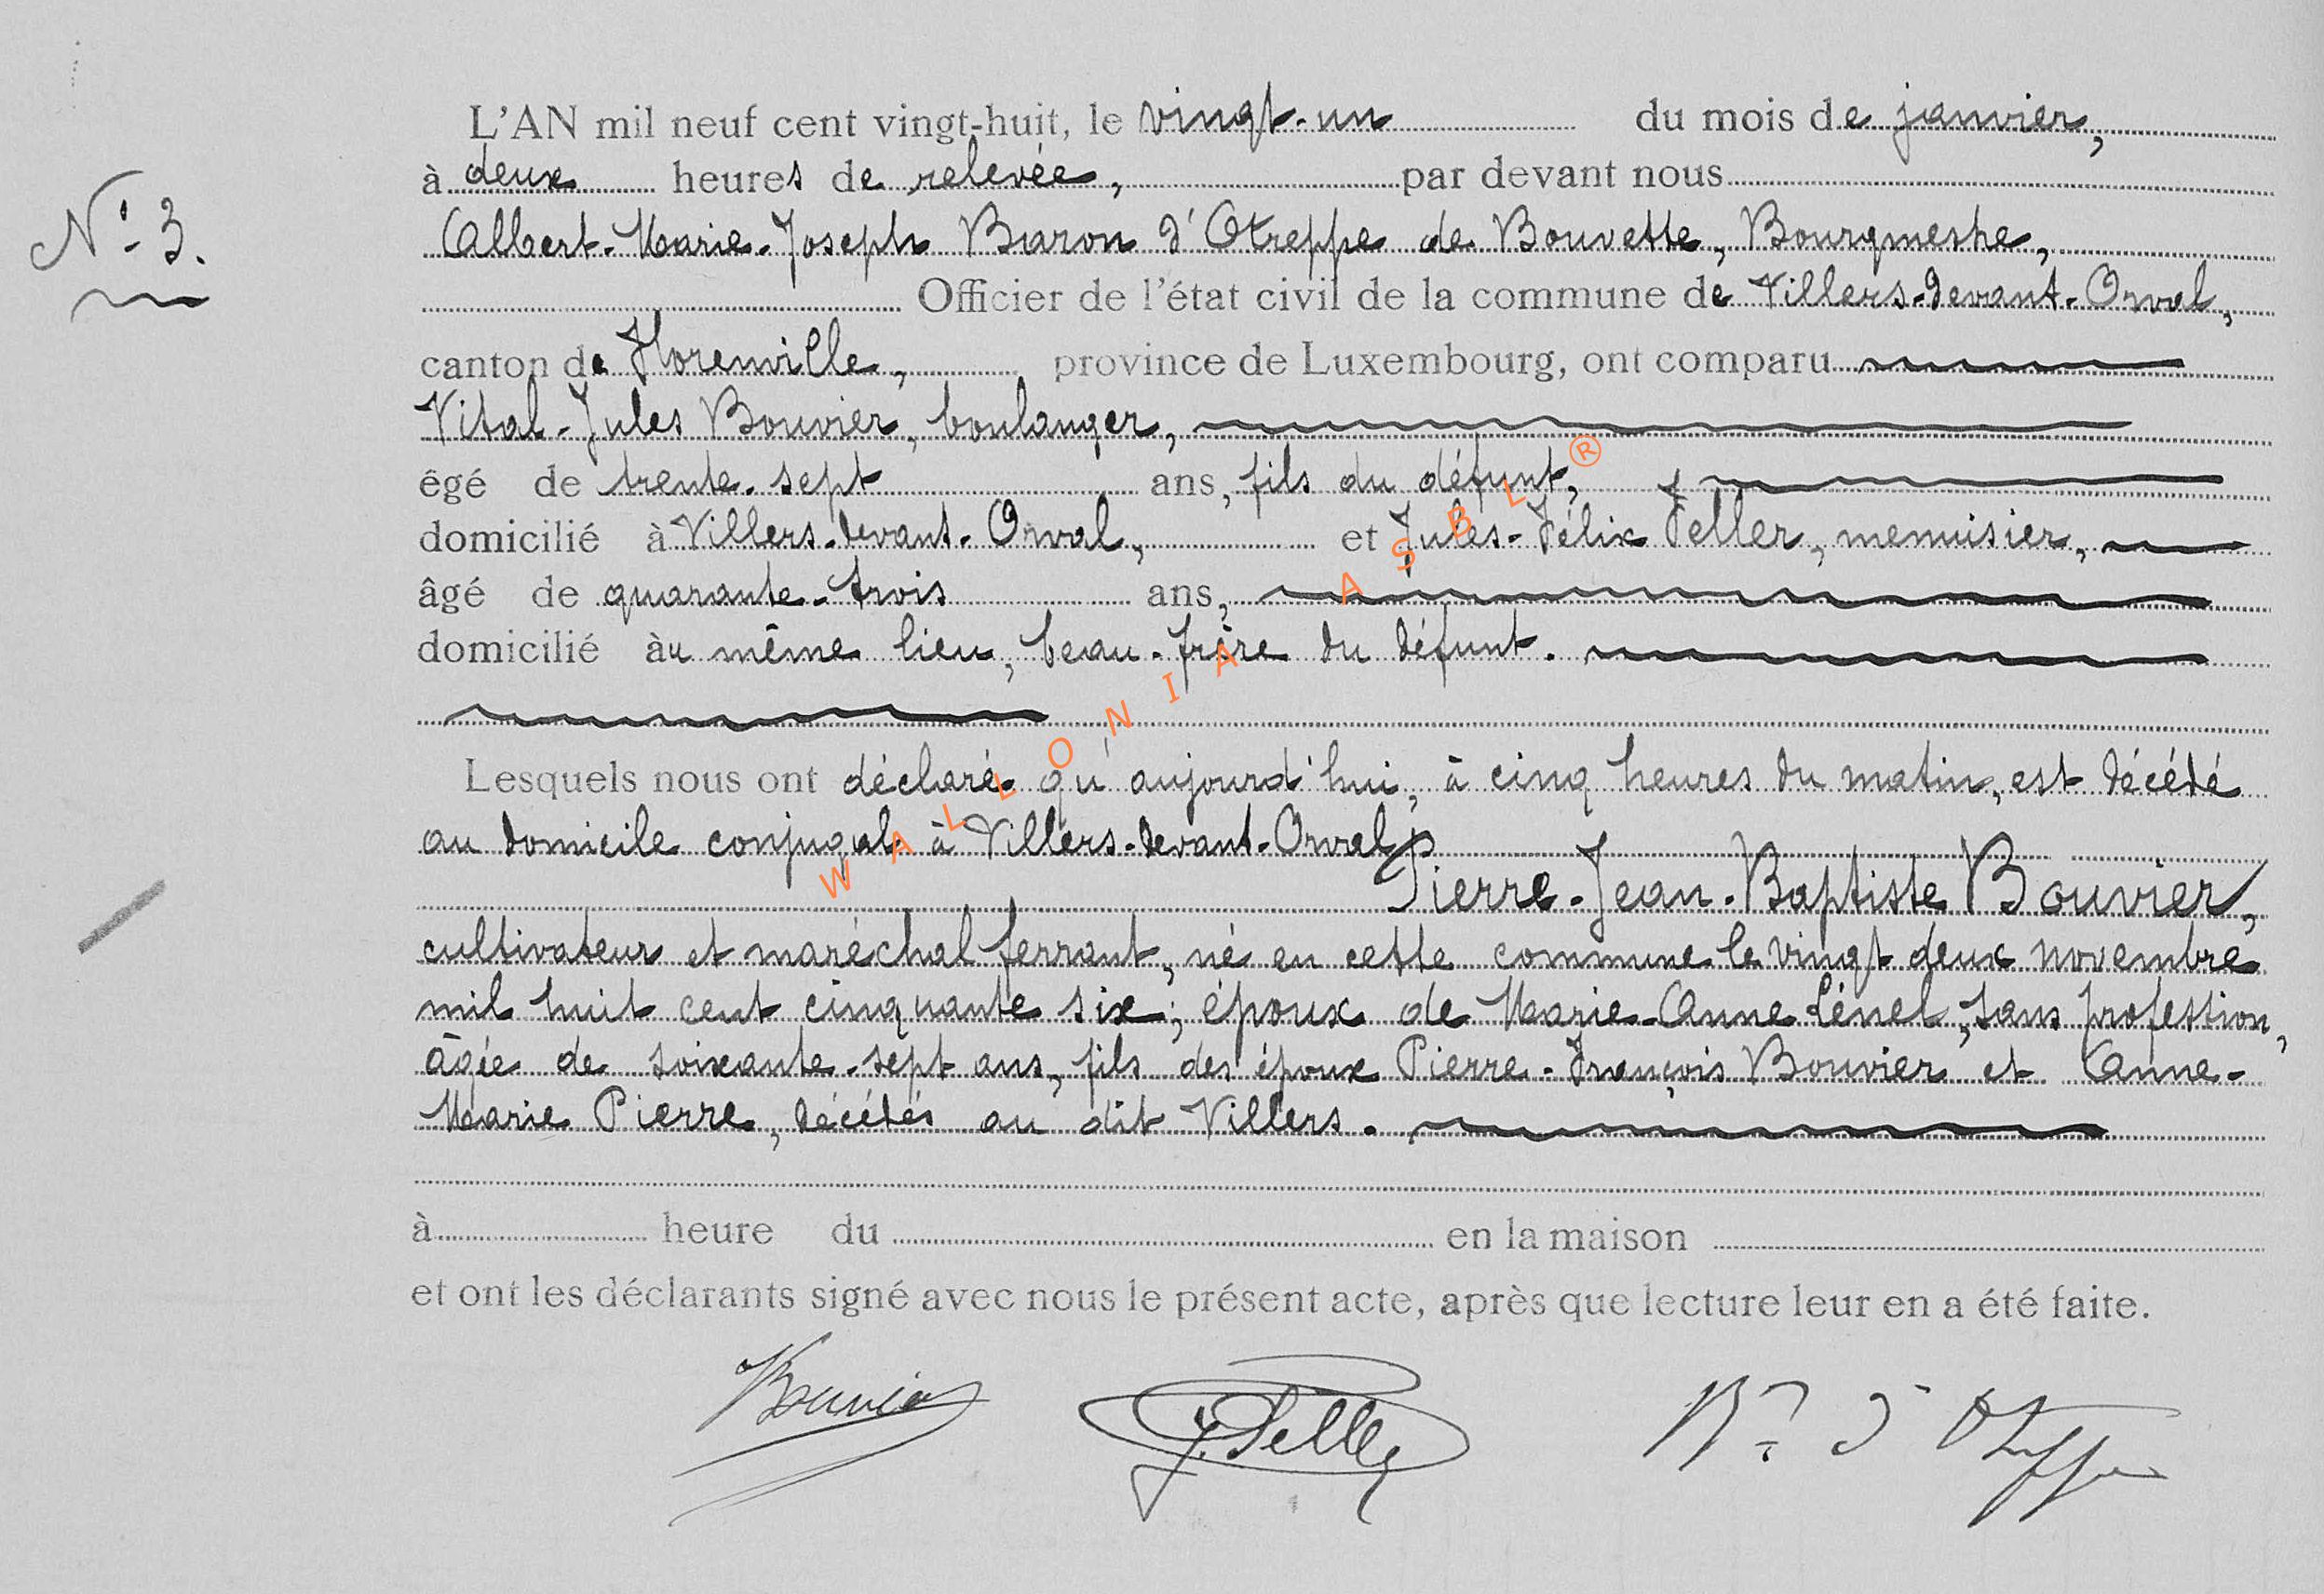 L'AN mil neuf cent vingt-huit, le vingt-un du mois de janvier,
à deux heures de relevée, par devant nous
N° 3.
Albert-Marie-Joseph Baron d'Otreppe de Bouvette, Bourgmestre,
Officier de l'état civil de la commune de Villers-devant-Orval,
canton de Florenville, province de Luxembourg, ont comparu
Vital-Jules Bouvier, boulanger,
êgé de trente-sept ans, fils du défunt,
domicilié à Villers-devant-Orval, et Jules-Félix Feller, menuisier,
âgé de quarante-trois ans,
domicilié au même lieu, beau-frère du défunt.
Lesquels nous ont déclaré qu'aujourd'hui, à cinq heures du matin, est décédé
au domicile conjugal à Villers-devant-Orval,
Pierre-Jean-Baptiste Bouvier,
cultivateur et maréchal ferrant, né en cette commune le vingt deux novembre
mil huit cent cinquante six; époux de Marie-Anne Lénel, sans profession,
âgée de soixante-sept ans, fils des époux Pierre-François Bouvier et Anne-
Marie Pierre, décédés au dit Villers.
à heure du en la maison
et ont les déclarants signé avec nous le présent acte, après que lecture leur en a été faite.
Bouvier J. Feller Bon d'Otreppe
WALLONIA ASBL ®